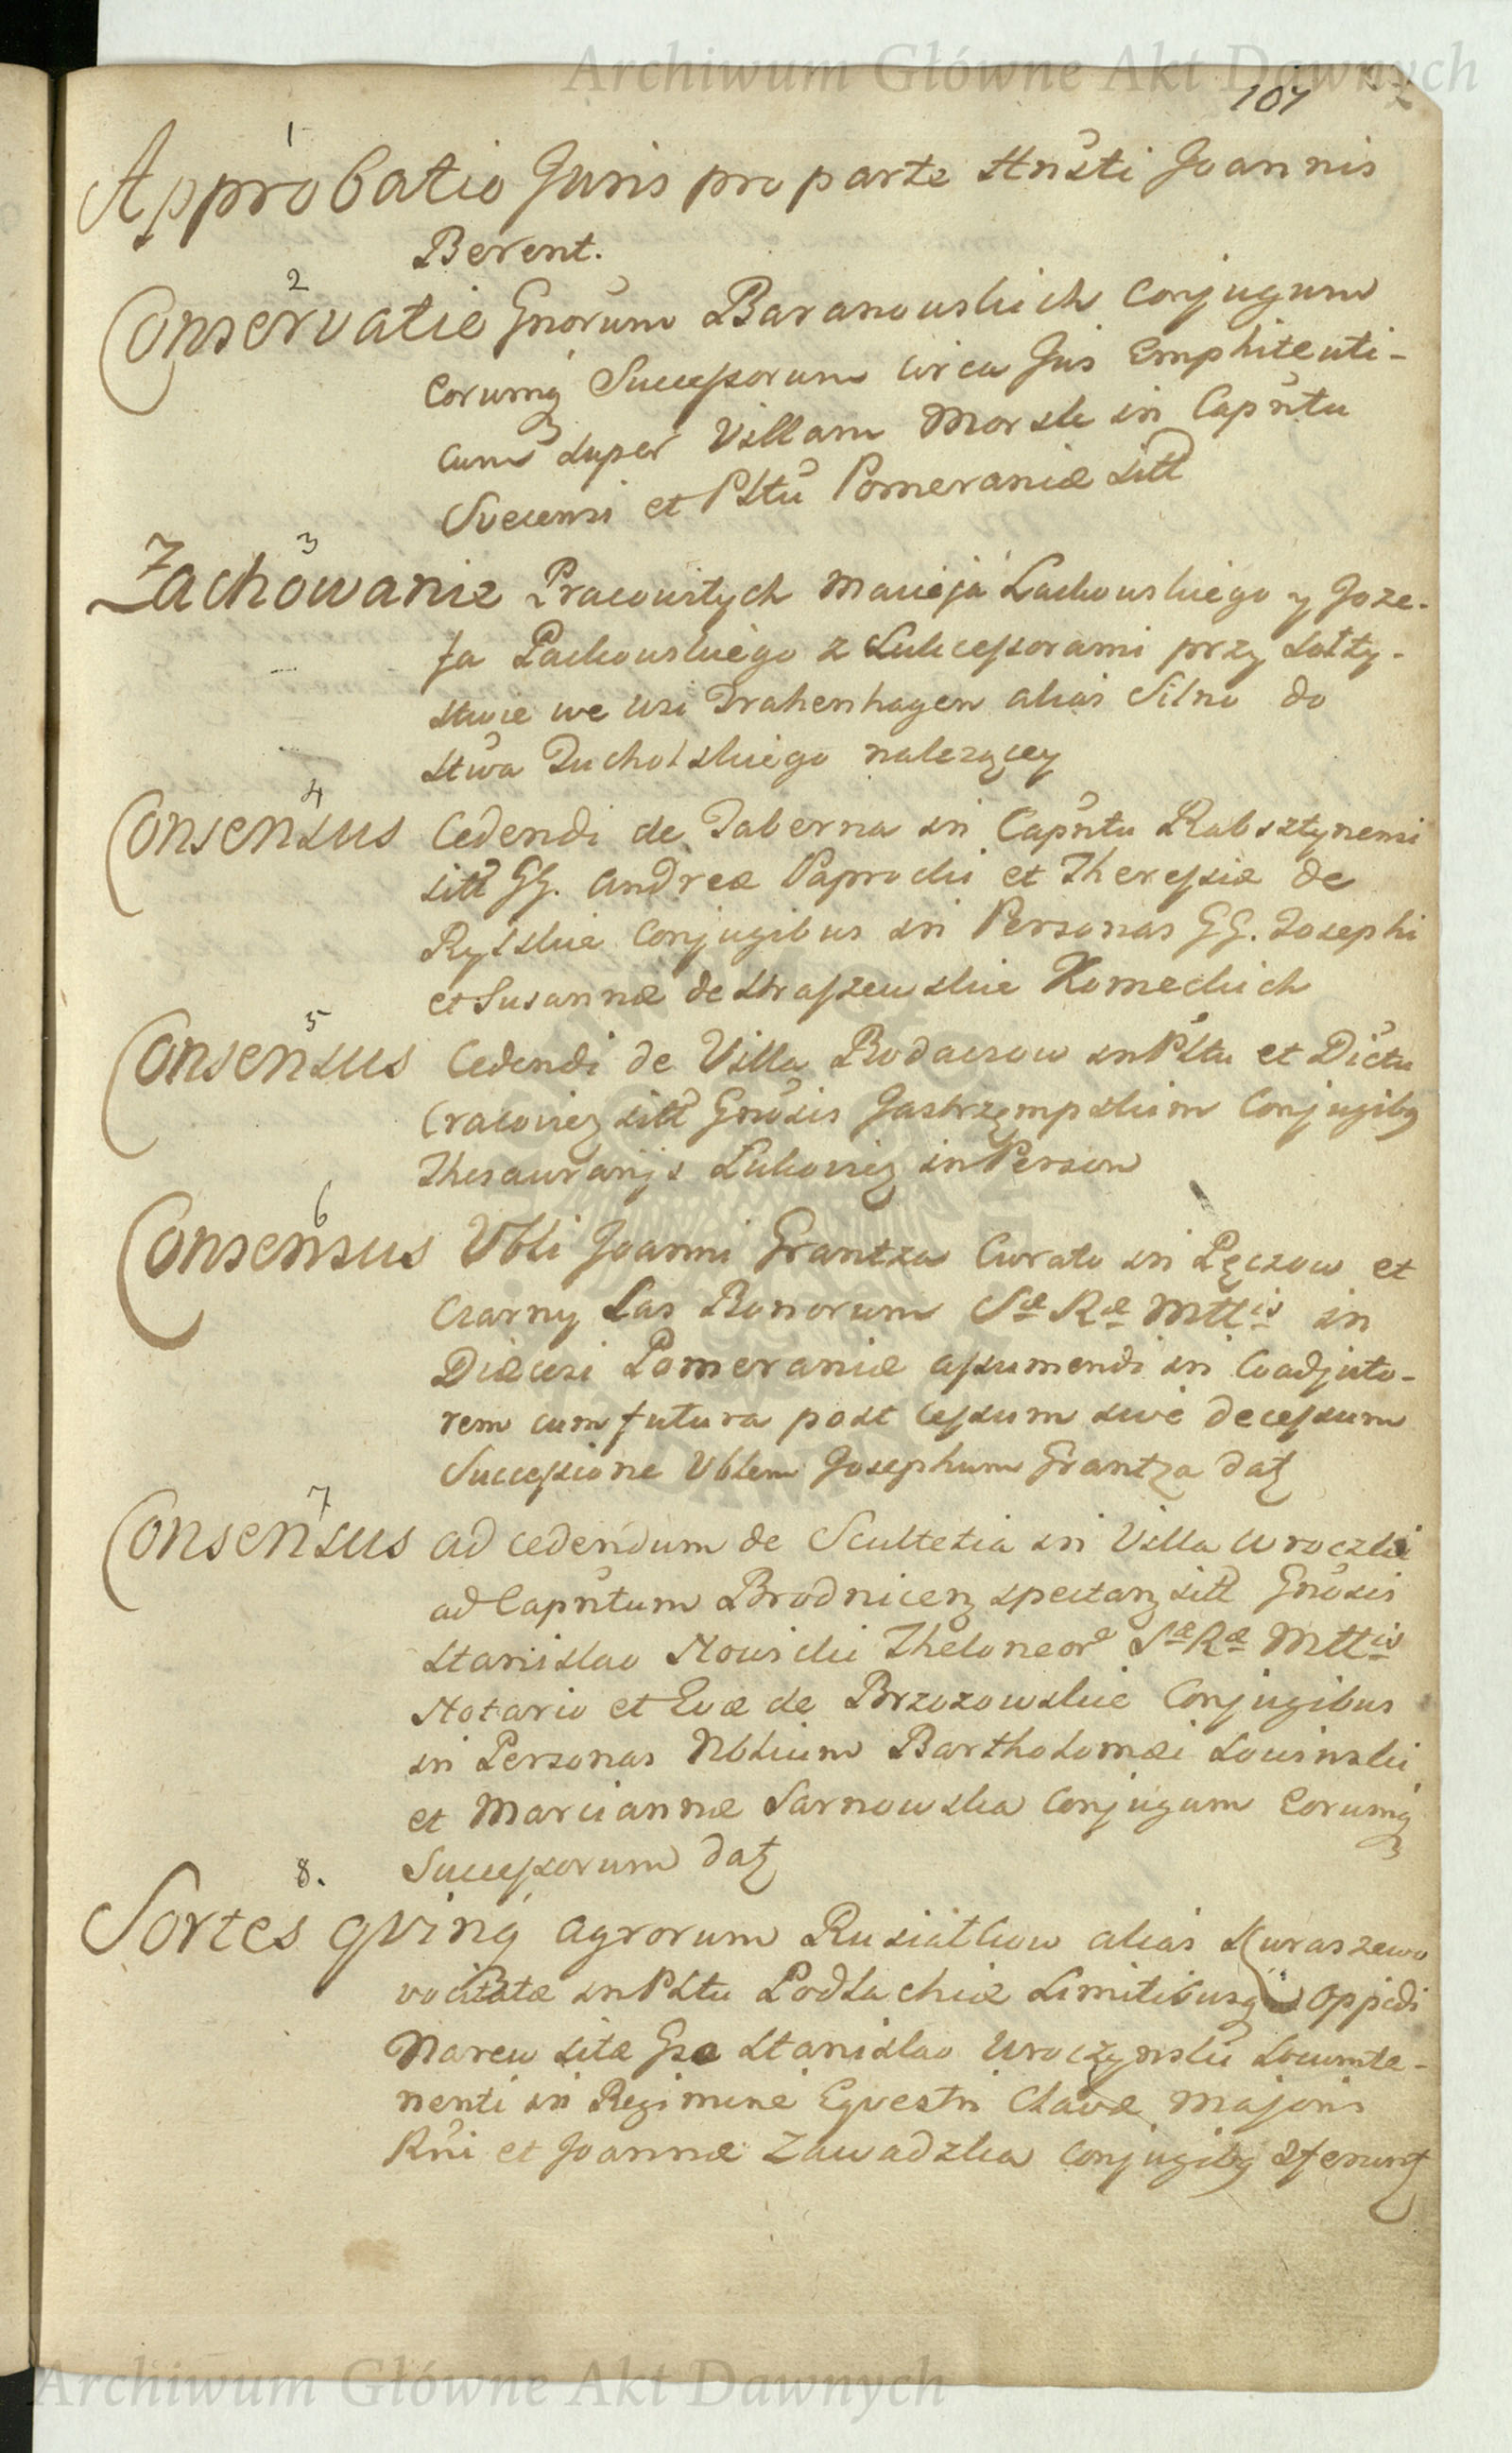 Archiwum Główne Akt Dawnych
107
1
Approbatio Juris pro parte Hnesti Joannis
Berent.
2
Conservatio Gnorum Baranowskich Conjugum
Eorumq Successorum circa Jus Emphiteuti-
cum super Villam Morsk in Capntu
Svecensi et Pltu Pomeraniæ sitt
3
Zachowanie Pracowitych Macieja Lachowskiego y Joze-
fa Pachowskiego z Sukcessorami przy Sołty-
stwie we wsi Trahenhagen alias Silno do
Stwa Tucholskiego nalezącey
4
Consensus Cedendi de Taberna in Capntu Rabsztynensi
sitt GG. Andreæ Paprocki et Theressiæ de
Rylskie Conjugibus in Personas GG. Josephi
et Susannæ de Straszewskie Komeckich
5
Consensus Cedendi de Villa Rodaczow in Pltu et Dictu
Cracovien sitt Gnosis Jastrzęmpskim Conjugibq
Thesaurarijs Lukovien in Person
6
Consensus Vbli Joanni Grantza Curato in Pęczow et
Czarny Las Bonorum Sæ Ræ Mttis in
Diæcesi Pomeraniæ assumendi in Coadjuto-
rem cum futura post cessum sive decessum
Successione Vblem Josephum Grantza dat
7
Consensus ad cedendum de Scultetia in Villa Wroczki
ad Capntum Brodnicen spectan sitt Gnosis
Stanislao Nowicki Theloneor Sæ Ræ Mttis
Notario et Evæ de Brzozowskie Conjugibus
in Personas Nblium Bartholomæi Lowinski
et Mariannæ Sarnowska Conjugum Eorumq
Successorum dat
8.
Sortes qvinq agrorum Rusiatkow alias Kuraszewo
vocitatæ in Pltu Podlachiæ Limitibusq Oppidi
Narew sitæ Gso Stanislao Wroczynski Locumte-
nenti in Regimine Eqvestri Clavæ Majoris
Rni et Joannæ Zawadzka Conjugibq Ofserunt
Archiwum Główne Akt Dawnych